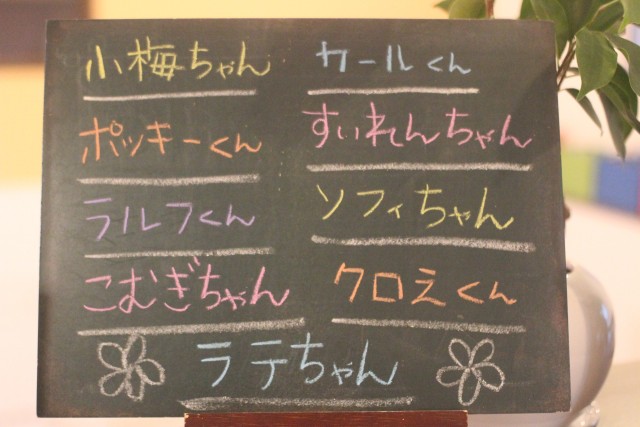 小梅ちゃん
カールくん
ポッキーくん
すいれんちゃん
ラルフくん
ソフィちゃん
こむぎちゃん
クロえくん
ラテちゃん